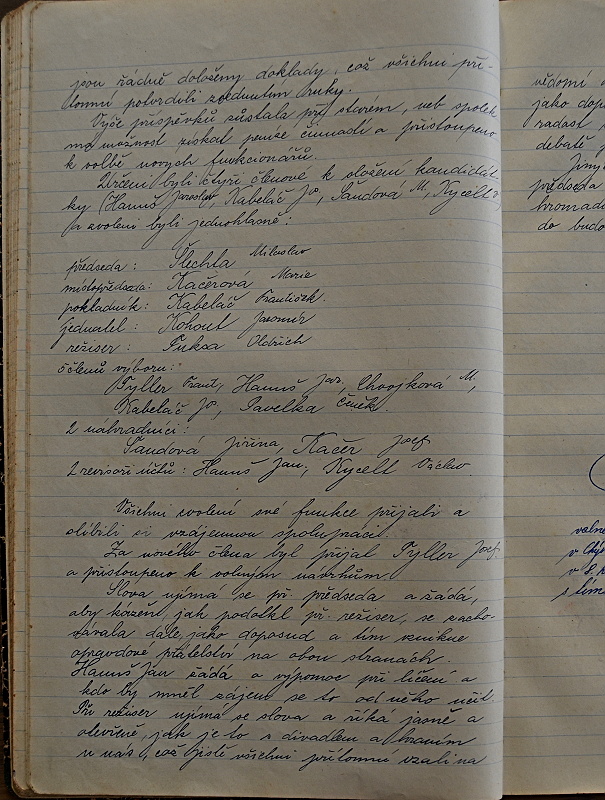 jsou řádně doloženy doklady, což všichni pří-
tomní potvrdili zvednutím ruky.
Výše příspěvků zůstala při starém, neb spolek
má možnost získat peníze činností a přistoupeno
k volbě nových funkcionářů.
Určeni byli čtyři členové k složení kandidát-
ky (Hanuš Jaroslav, Kabeláč Jos, Šandová M, Kycelt V
a zvoleni byli jednohlasně:
předseda: Šlechta Miloslav
místopředseda: Kačerová Marie
pokladník: Kabeláč František.
jednatel: Kohout Jaromír
režiser: Fuksa Oldřich
5 členů výboru:
Tyller Frant, Hanuš Jar, Chvojková M,
Kabeláč Jos, Pavelka Čeněk.
2 náhradníci:
Šandová Jiřina, Kačer Josef
2 revisoři účtů: Hanuš Jan, Kycelt Václav.
Všichni zvolení své funkce přijali a
slíbili si vzájemnou spolupráci.
Za nového člena byl přijat Tyller Josef
a přistoupeno k volným návrhům.
Slova ujímá se př. předseda a žádá,
aby kázeň, jak podotkl př. režiser, se zacho-
vávala dále, jako doposud a tím vznikne
opravdové přátelství na obou stranách.
Hanuš Jan žádá o výpomoc při líčení a
kdo by měl zájem se to od něho učit.
Př. režiser ujímá se slova a říká jasně a
otevřeně, jak je to s divadlem a hraním
u nás, což jistě všichni přítomní vzali na
vědomí
jako dop
radost
debatě
předseda
hromad
do budo
valne